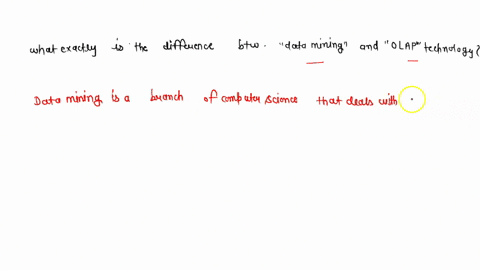 what exactly is the difference btw. "data mining" and "OLAP" technology?
Data mining is a branch of computer science that deals with